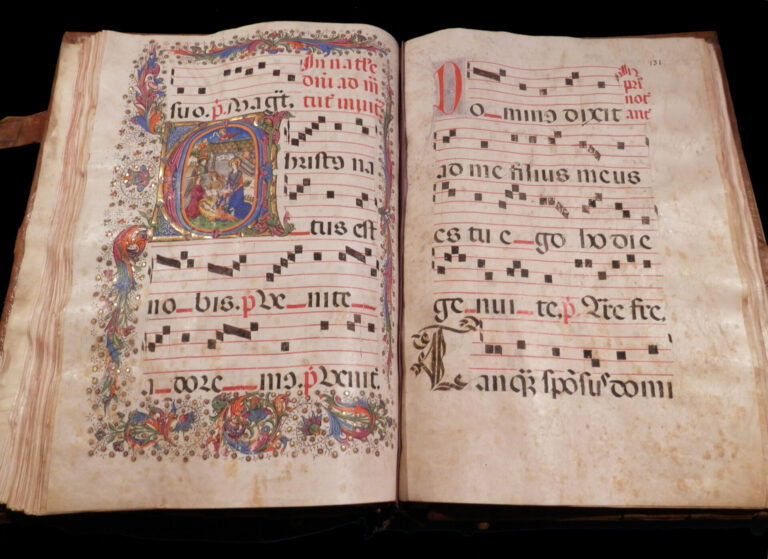 In nat̃e
dñi ad m̃
suo. p̃. Magt̃. tut̃ inuit̃
Christꝰ na
_tus est
no_bis. p̃ Ve_nite_
a_dore_mꝰ. p̃ Venit̃.
131
In
pr̃s
not̃
Do_minꝰ dixit ant̃
ad me filius meus
es tu e_go ho die
ge_nui_te. p̃. Q̃re fre.
Tanq̃ʒ spõsus domi